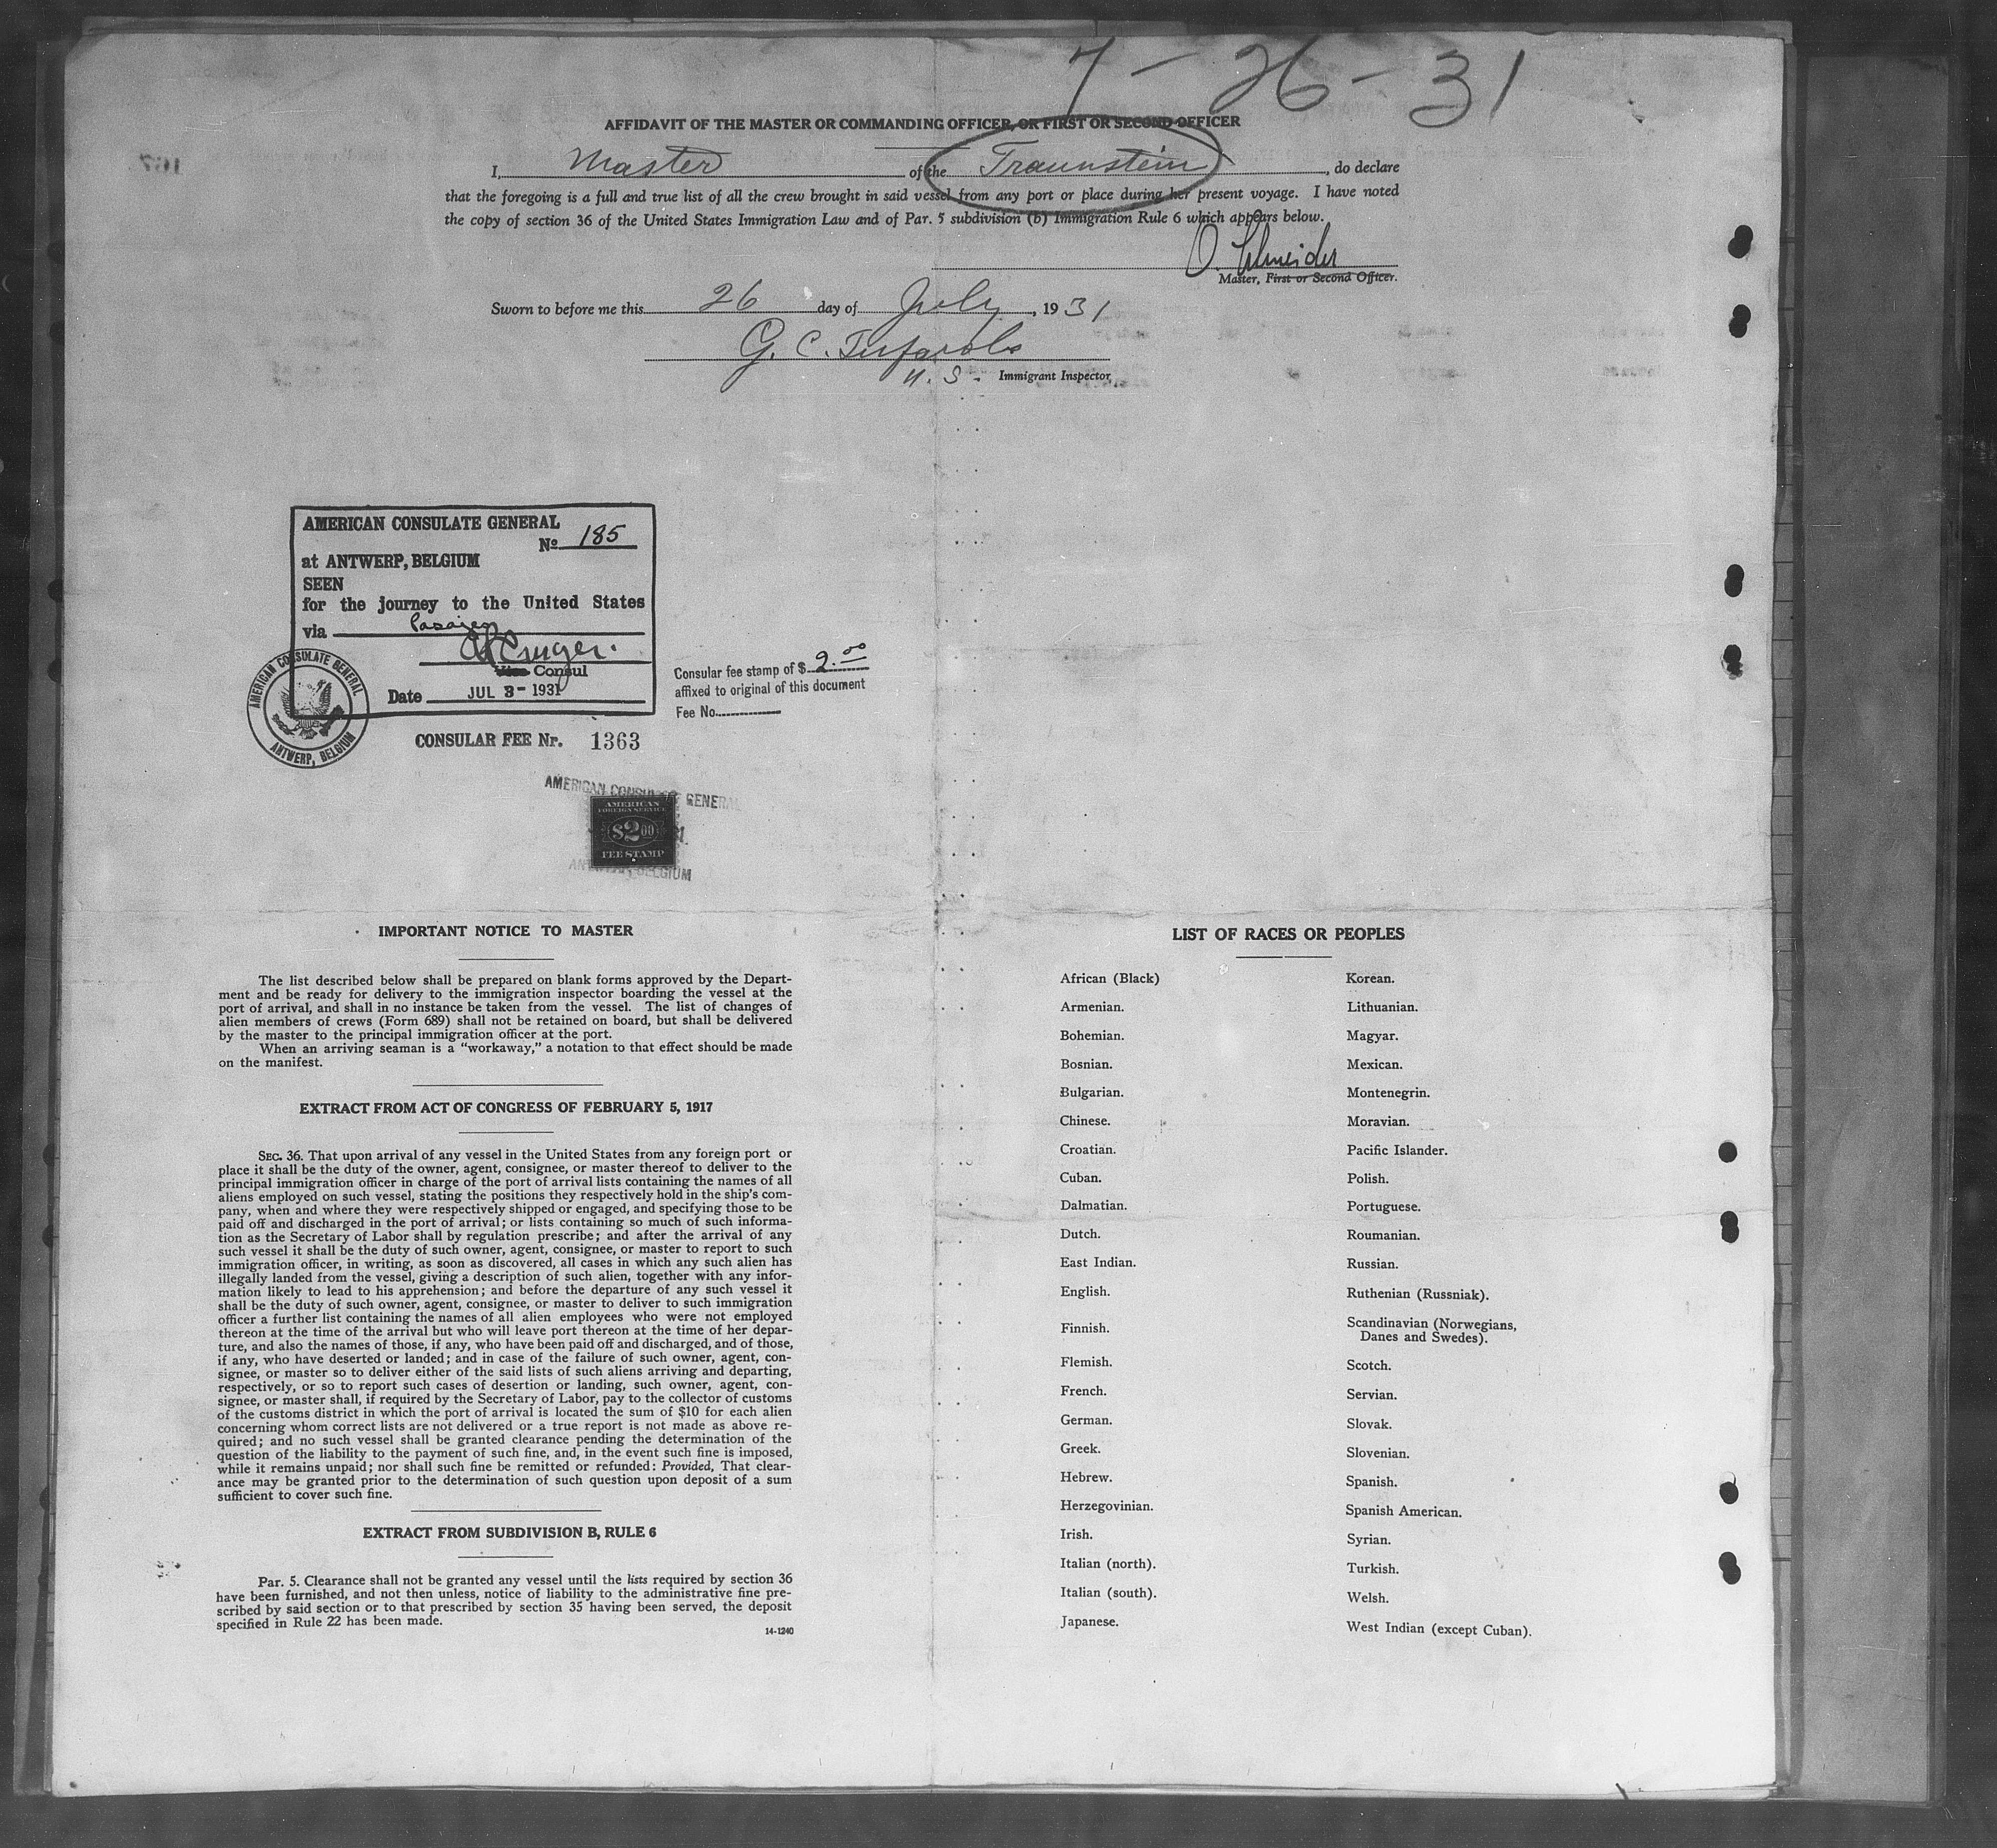 7-26-31
AFFIDAVIT OF THE MASTER OR COMMANDING OFFICER, OR FIRST OR SECOND OFFICER
I, Master of the Traunstein, do declare
that the foregoing is a full and true list of all the crew brought in said vessel from any port or place during her present voyage. I have noted
the copy of section 36 of the United States Immigration Law and of Par. 5 subdivision (b) Immigration Rule 6 which appears below.
O. Schneider
Master, First or Second Officer.
Sworn to before me this 26 day of July, 1931
G. C.
U. S. Immigrant Inspector
AMERICAN CONSULATE GENERAL
No 185
at ANTWERP, BELGIUM
SEEN
for the journey to the United States
via Pasajes
Vice Consul
Date JUL 3- 1931
AMERICAN CONSULATE GENERAL
ANTWERP, BELGIUM
Consular fee stamp of $ 2.00
affixed to original of this document
Fee No.
CONSULAR FEE Nr. 1363
AMERICAN CONSULATE GENERAL
AMERICAN
FOREIGN SERVICE
$2.00
FEE STAMP
ANTWERP, BELGIUM
IMPORTANT NOTICE TO MASTER
The list described below shall be prepared on blank forms approved by the Depart-
ment and be ready for delivery to the immigration inspector boarding the vessel at the
port of arrival, and shall in no instance be taken from the vessel. The list of changes of
alien members of crews (Form 689) shall not be retained on board, but shall be delivered
by the master to the principal immigration officer at the port.
When an arriving seaman is a “workaway,” a notation to that effect should be made
on the manifest.
EXTRACT FROM ACT OF CONGRESS OF FEBRUARY 5, 1917
SEC. 36. That upon arrival of any vessel in the United States from any foreign port or
place it shall be the duty of the owner, agent, consignee, or master thereof to deliver to the
principal immigration officer in charge of the port of arrival lists containing the names of all
aliens employed on such vessel, stating the positions they respectively hold in the ship's com-
pany, when and where they were respectively shipped or engaged, and specifying those to be
paid off and discharged in the port of arrival; or lists containing so much of such informa-
tion as the Secretary of Labor shall by regulation prescribe; and after the arrival of any
such vessel it shall be the duty of such owner, agent, consignee, or master to report to such
immigration officer, in writing, as soon as discovered, all cases in which any such alien has
illegally landed from the vessel, giving a description of such alien, together with any infor-
mation likely to lead to his apprehension; and before the departure of any such vessel it
shall be the duty of such owner, agent, consignee, or master to deliver to such immigration
officer a further list containing the names of all alien employees who were not employed
thereon at the time of the arrival but who will leave port thereon at the time of her depar-
ture, and also the names of those, if any, who have been paid off and discharged, and of those,
if any, who have deserted or landed; and in case of the failure of such owner, agent, con-
signee, or master so to deliver either of the said lists of such aliens arriving and departing,
respectively, or so to report such cases of desertion or landing, such owner, agent, con-
signee, or master shall, if required by the Secretary of Labor, pay to the collector of customs
of the customs district in which the port of arrival is located the sum of $10 for each alien
concerning whom correct lists are not delivered or a true report is not made as above re-
quired; and no such vessel shall be granted clearance pending the determination of the
question of the liability to the payment of such fine, and, in the event such fine is imposed,
while it remains unpaid; nor shall such fine be remitted or refunded: Provided, That clear-
ance may be granted prior to the determination of such question upon deposit of a sum
sufficient to cover such fine.
EXTRACT FROM SUBDIVISION B, RULE 6
Par. 5. Clearance shall not be granted any vessel until the lists required by section 36
have been furnished, and not then unless, notice of liability to the administrative fine pre-
scribed by said section or to that prescribed by section 35 having been served, the deposit
specified in Rule 22 has been made.
14-1240
LIST OF RACES OR PEOPLES
African (Black)
Armenian.
Bohemian.
Bosnian.
Bulgarian.
Chinese.
Croatian.
Cuban.
Dalmatian.
Dutch.
East Indian.
English.
Finnish.
Flemish.
French.
German.
Greek.
Hebrew.
Herzegovinian.
Irish.
Italian (north).
Italian (south).
Japanese.
Korean.
Lithuanian.
Magyar.
Mexican.
Montenegrin.
Moravian.
Pacific Islander.
Polish.
Portuguese.
Roumanian.
Russian.
Ruthenian (Russniak).
Scandinavian (Norwegians,
Danes and Swedes).
Scotch.
Servian.
Slovak.
Slovenian.
Spanish.
Spanish American.
Syrian.
Turkish.
Welsh.
West Indian (except Cuban).